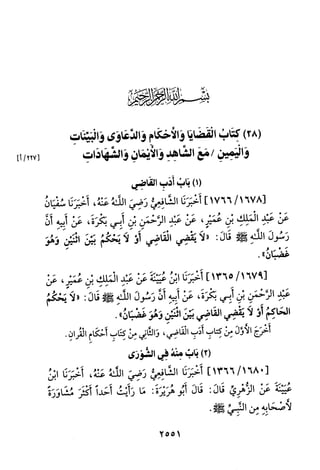 بسم الله الرحمن الرحيم
(٢٨) كِتَابُ الْقَضَايَا وَالْأَحْكَامِ وَالدَّعَاوَى وَالْبَيِّنَاتِ
وَالْيَمِينِ / مَعَ الشَّاهِدِ وَالْأَيْمَانِ وَالشَّهَادَاتِ
[٢٢٧/أ]
(١) بَابُ أَدَبِ القَاضِي
[١٧٦٦/١٦٧٨] أَخْبَرَنَا الشَّافِعِيُّ رَضِيَ اللَّهُ عَنْهُ، أَخْبَرَنَا سُفْيَانُ
عَنْ عَبْدِ الْمَلِكِ بْنِ عُمَيْرٍ، عَنْ عَبْدِ الرَّحْمَنِ بْنِ أَبِي بَكْرَةَ، عَنْ أَبِيهِ أَنَّ
رَسُولَ اللهِ ﷺ قَالَ: «لَا يَقْضِي الْقَاضِي أَوْ لَا يَحْكُمُ بَيْنَ اثْنَيْنِ وَهُوَ
غَضْبَانُ».
[١٣٦٥/١٦٧٩] أَخْبَرَنَا ابْنُ عُيَيْنَةَ عَنْ عَبْدِ الْمَلِكِ بْنِ عُمَيْرٍ، عَنْ
عَبْدِ الرَّحْمَنِ بْنِ أَبِي بَكْرَةَ، عَنْ أَبِيهِ أَنَّ رَسُولَ اللهِ ﷺ قَالَ: «لَا يَحْكُمُ
الحَاكِمُ أَوْ لَا يَقْضِي القَاضِي بَيْنَ اثْنَيْنِ وَهُوَ غَضْبَانُ».
أَخْرَجَ الأَوَّلَ مِنْ كِتَابِ أَدَبِ القَاضِي، وَالثَّانِيَ مِنْ كِتَابِ أَحْكَامِ القُرآنِ.
(٢) بَابُ مِنْهُ فِي الشُّورَى
[١٣٦٦/١٦٨٠] أَخْبَرَنَا الشَّافِعِيُّ رَضِيَ اللَّهُ عَنْهُ، أَخْبَرَنَا ابْنُ
عُيَيْنَةَ عَنْ الزُّهْرِيِّ قَالَ: قَالَ أَبُو هُرَيْرَةَ: مَا رَأَيْتُ أَحَداً أَكْثَرَ مُشَاوَرَةً
لأَصْحَابِهِ مِنَ النَّبِيِّ ﷺ.
٢٥٥١